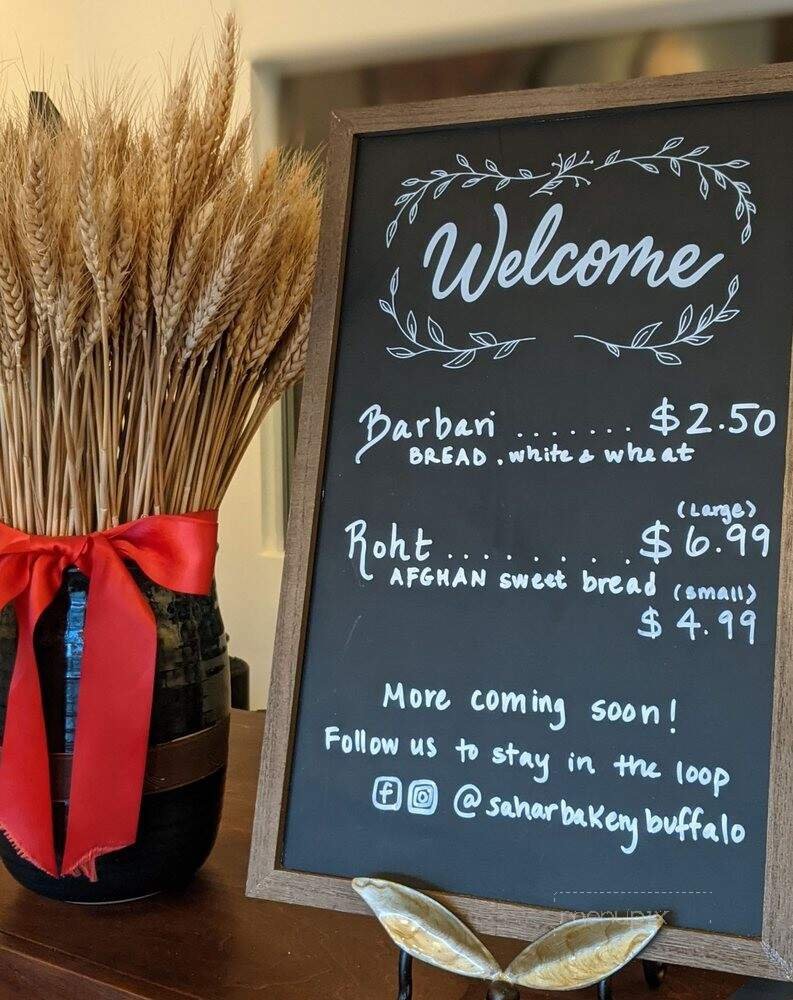 Welcome
Barbari ....... $2.50
BREAD. white & wheat
(Large)
Roht ......... $6.99
AFGHAN sweet bread (small)
$4.99
More coming soon!
Follow us to stay in the loop
@saharbakerybuffalo
menupix